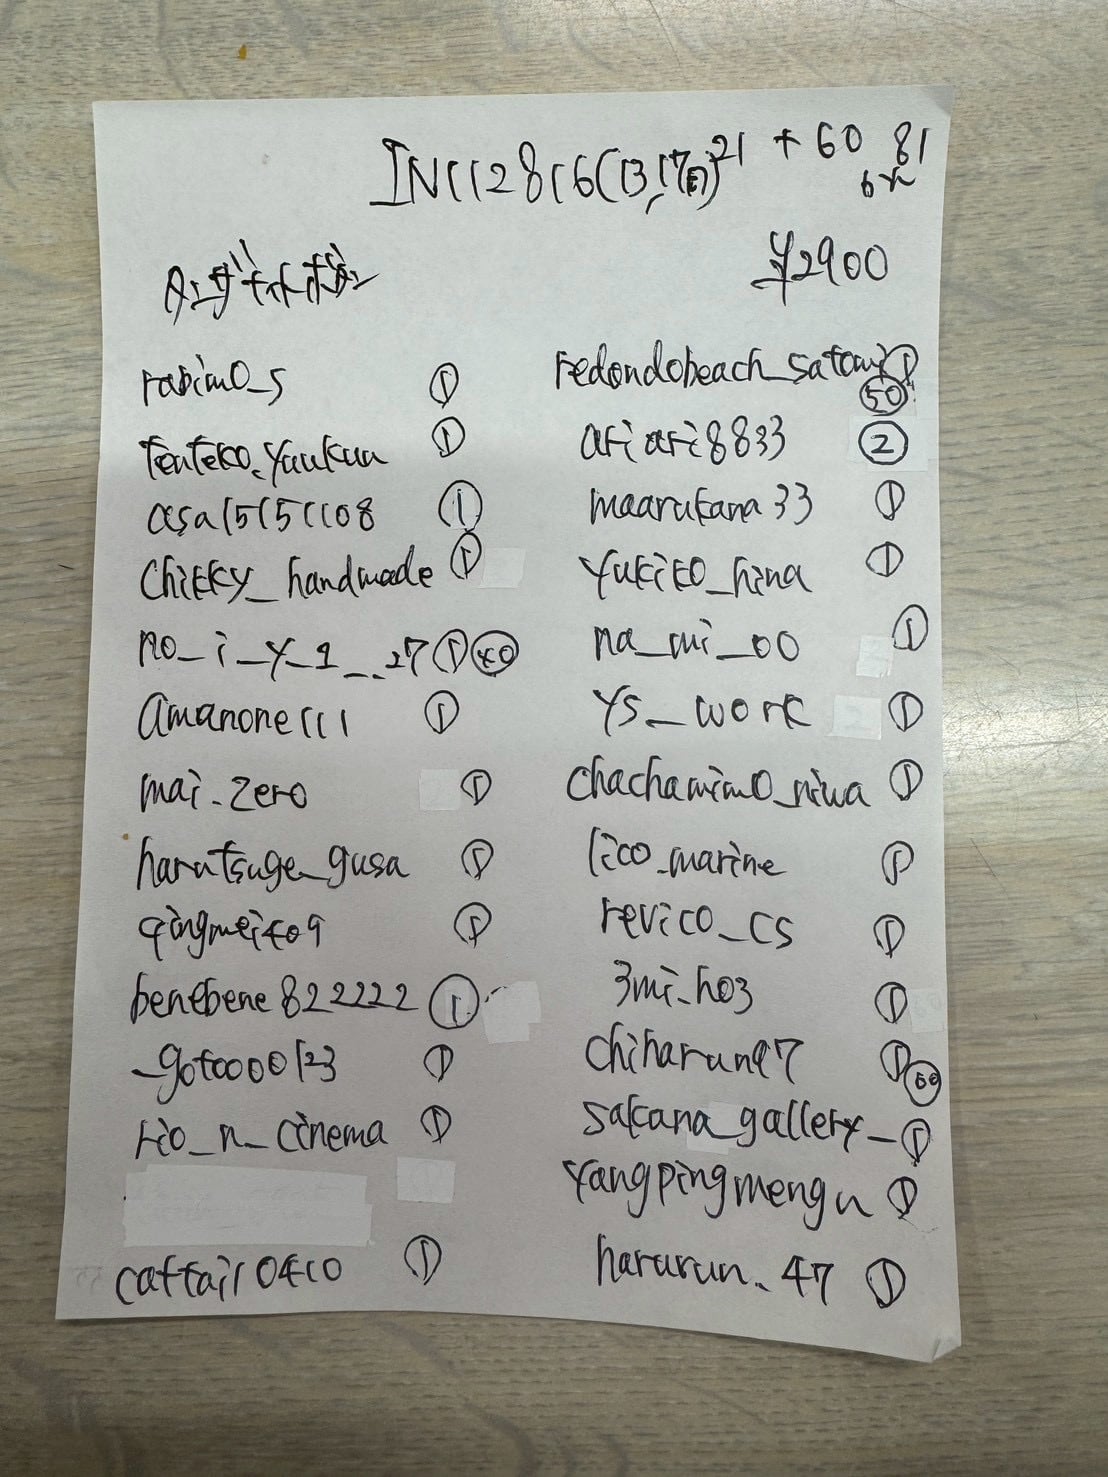 IN112816(13,17日)21 + 60 81
¥2900
rabimo_s ①
tenteko.yuukun ①
asa15151108 ①
chikky_handmade ①
no_i_y_1__.27 ① 40
amanone111 ①
mai.zero ①
harutsuge_gusa ①
qingmei409 ①
benebene822222 ①
_gotoooo123 ①
rio_n_cinema ①
cattail0410 ①
redondobeach_satomi ①
50
ariari8833 ②
maarukana33 ①
yukiko_hina ①
na_mi_00 ①
ys_work ①
chachamimo_niwa ①
lico.marine ①
revico_cs ①
3mi_ho3 ①
chiharun97 ① 60
sakana_gallery_ ①
yangpingmengu ①
harurun.47 ①